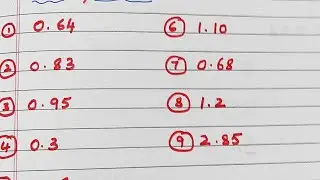 ① 0.64
② 0.83
③ 0.95
④ 0.3
⑥ 1.10
⑦ 0.68
⑧ 1.2
⑨ 2.85